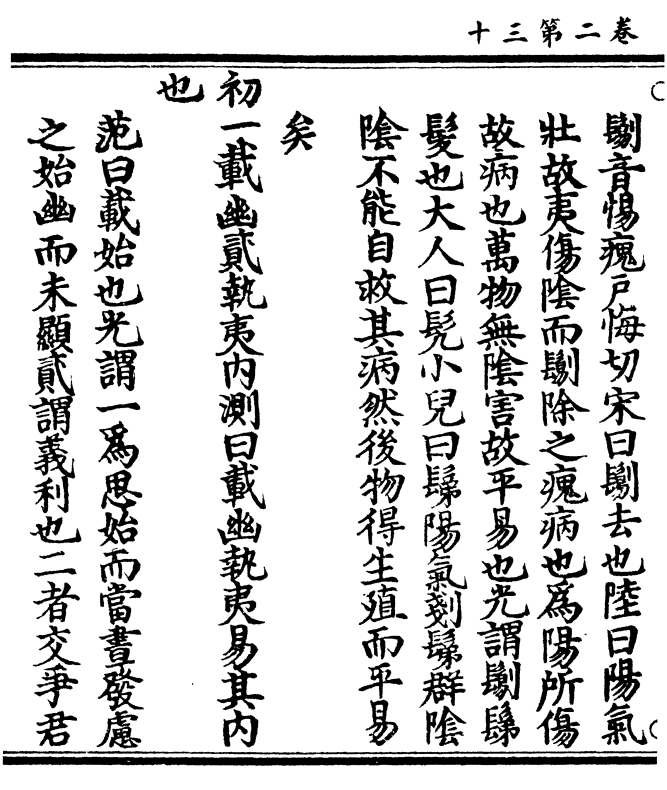 十三第二卷
鬄音惕瘣戶悔切宋曰鬄去也陸曰陽氣
壯故夷傷陰而鬄除之瘣病也爲陽所傷
故病也萬物無陰害故平易也光謂鬄鬀
髮也大人曰髡小兒曰鬀陽氣剗鬀群陰
陰不能自救其病然後物得生殖而平易
矣
初一載幽貳執夷內測曰載幽執夷易其內
也
范曰載始也光謂一爲思始而當晝發慮
之始幽而未顯貳謂義利也二者交爭君